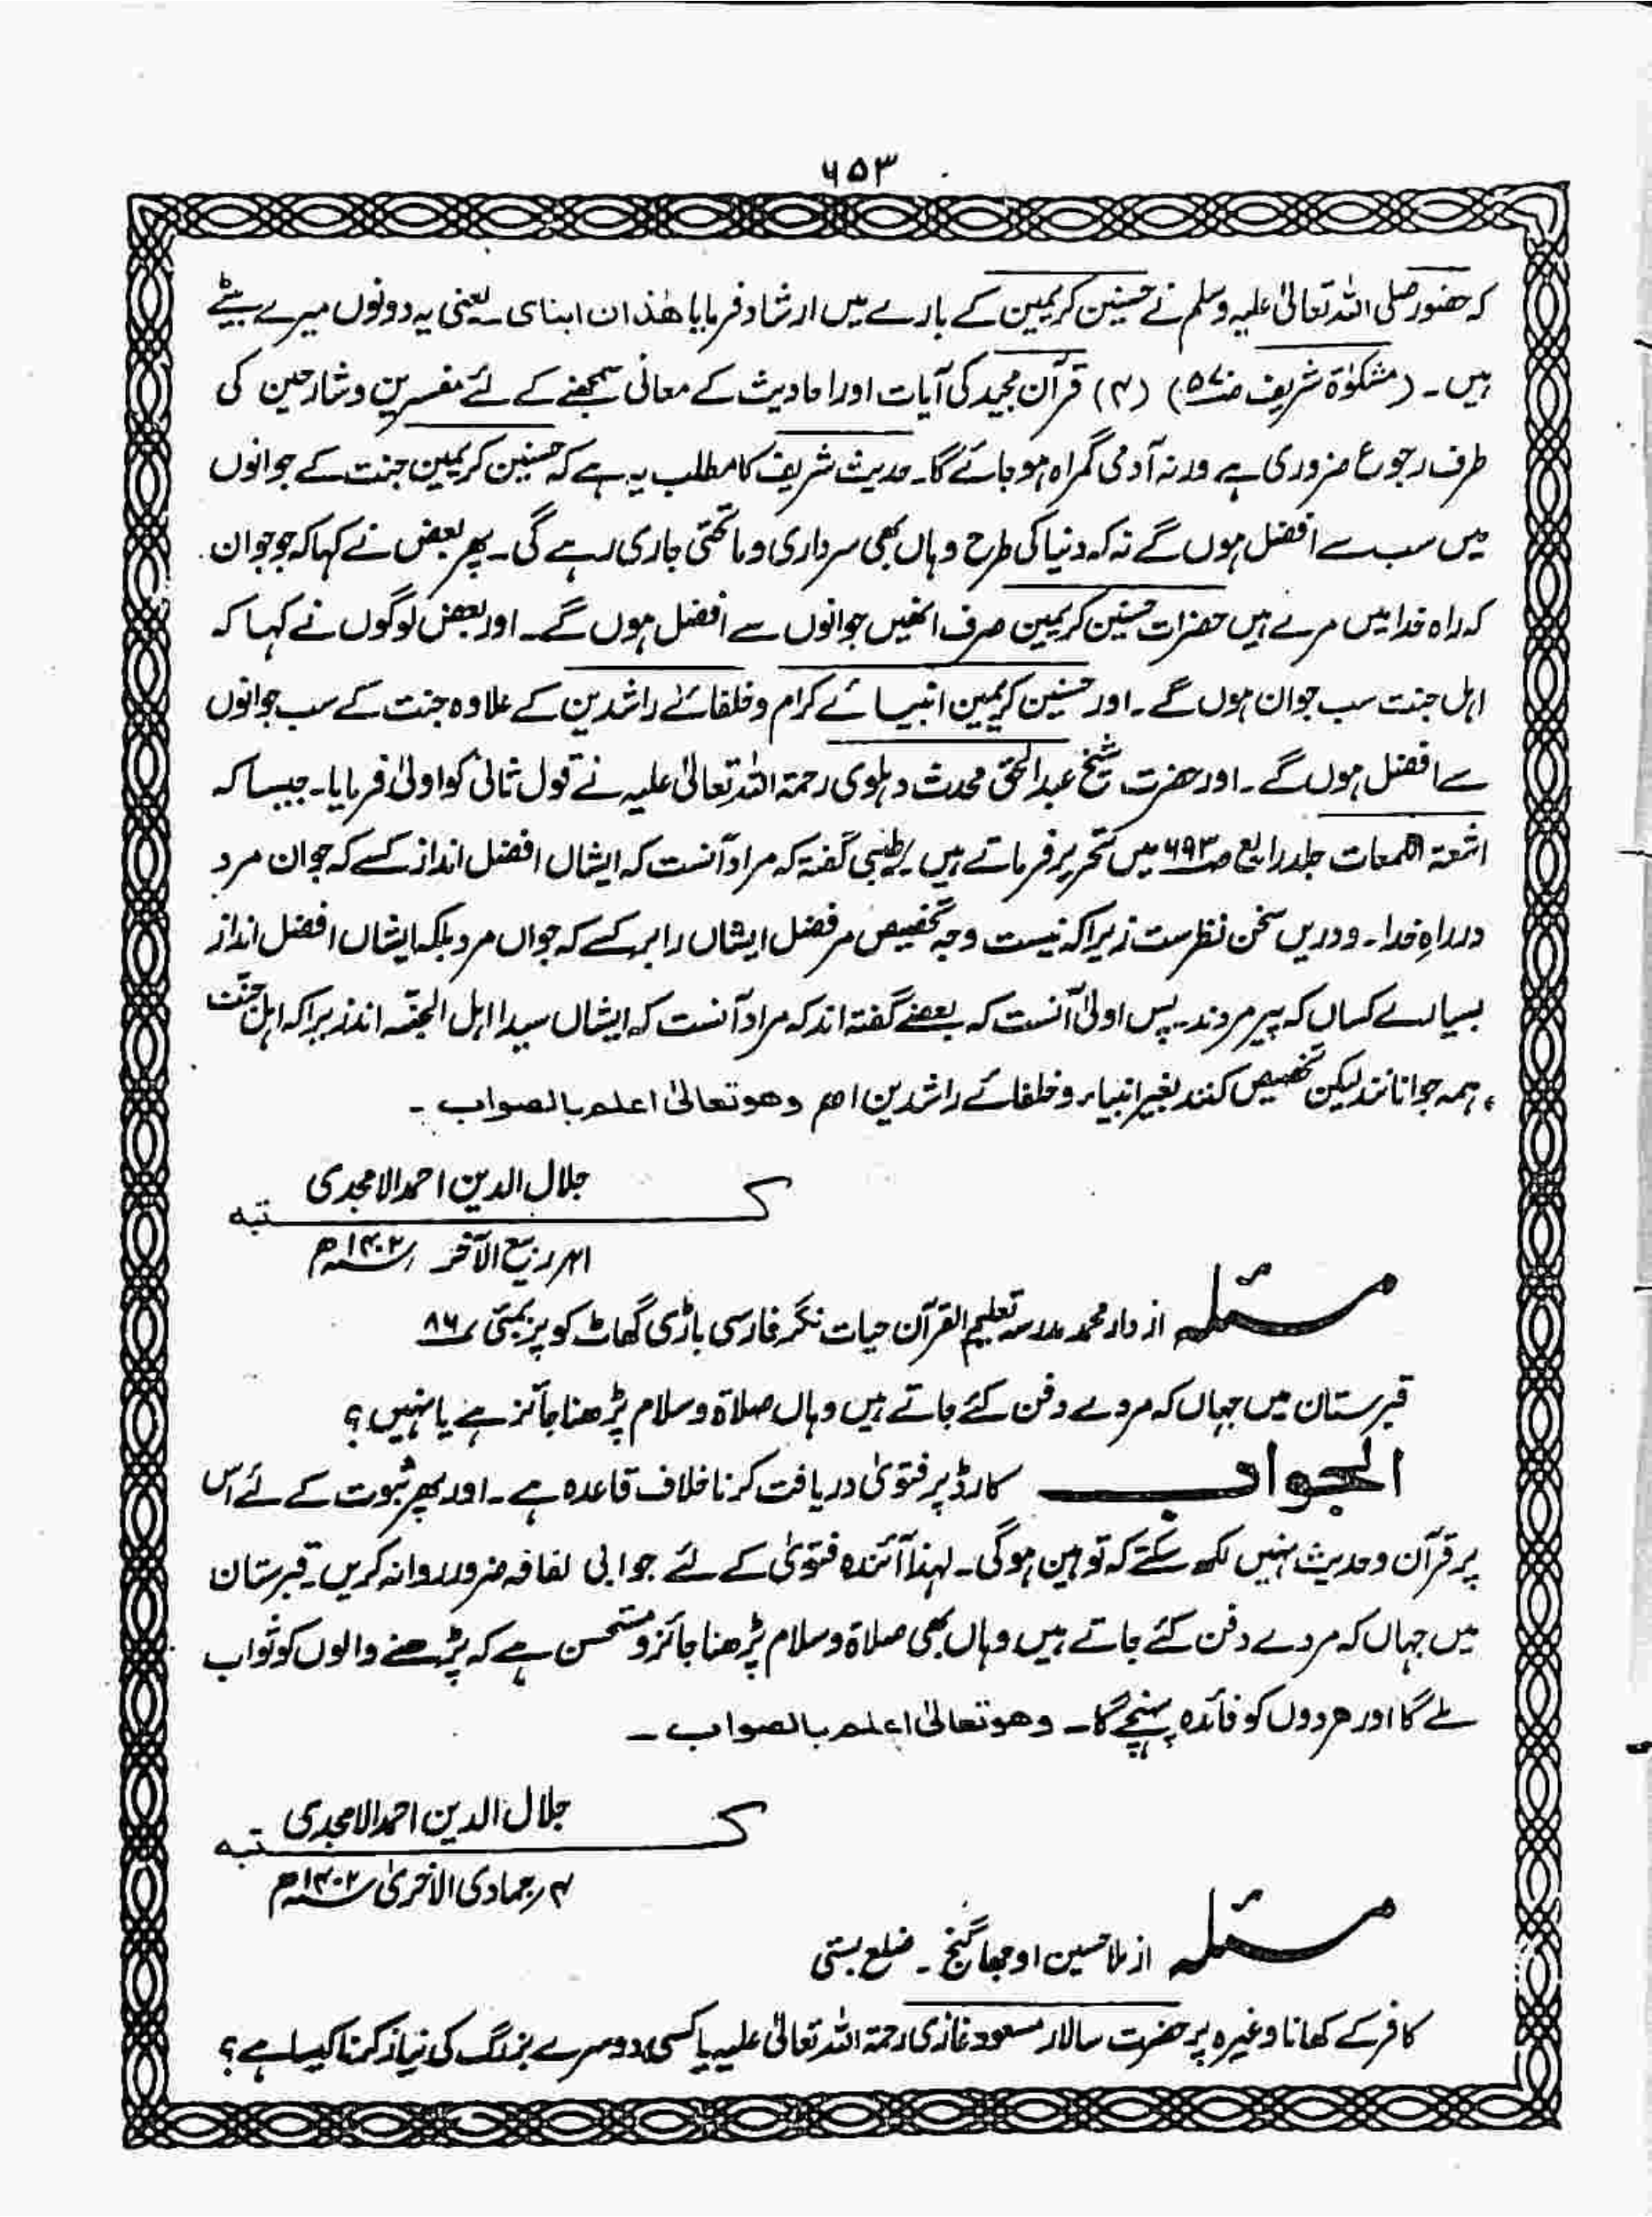 ۶۵۳
کہ حضور صلی اللہ تعالیٰ علیہ وسلم نے حسنین کریمین کے بارے میں ارشاد فرمایا ھٰذان ابنای ۔ یعنی یہ دونوں میرے بیٹے
ہیں ۔ (مشکوٰۃ شریف ص۵۷۰) (۴) قرآن مجید کی آیات اور احادیث کے معانی سمجھنے کے لئے مفسرین و شارحین کی
طرف رجوع ضروری ہے ورنہ آدمی گمراہ ہو جائے گا۔ حدیث شریف کا مطلب یہ ہے کہ حسنین کریمین جنت کے جوانوں
میں سب سے افضل ہوں گے نہ کہ دنیا کی طرح وہاں بھی سرداری و ماتحتی جاری رہے گی ۔ پھر بعض نے کہا کہ جو جوان
کہ راہ خدا میں مرے ہیں حضرات حسنین کریمین صرف انھیں جوانوں سے افضل ہوں گے ۔ اور بعض لوگوں نے کہا کہ
اہل جنت سب جوان ہوں گے ۔ اور حسنین کریمین انبیائے کرام و خلفائے راشدین کے علاوہ جنت کے سب جوانوں
سے افضل ہوں گے ۔ اور حضرت شیخ عبدالحق محدث دہلوی رحمۃ اللہ تعالیٰ علیہ نے قول ثانی کو اولیٰ فرمایا۔ جیسا کہ
اشعۃ اللمعات جلد رابع ص۶۹۳ میں تحریر فرماتے ہیں ۔ طیبی گفتہ کہ مراد آنست کہ ایشاں افضل انداز کسے کہ جوان مرد
در راہِ خدا ۔ و دریں سخن نظرست زیرا کہ نیست وجہ تخصیص مر فضل ایشاں را بر کسے کہ جواں مرد بلکہ ایشاں افضل انداز
بسیارے کساں کہ پیر مردند ۔ پس اولیٰ آنست کہ بعضے گفتہ اند کہ مراد آنست کہ ایشاں سیدا اہل الجنّہ اند زیرا کہ اہل جنت
ہمہ جوانانند لیکن تخصیص کنند بغیر انبیاء و خلفائے راشدین اھ وھو تعالیٰ اعلم بالصواب ۔
جلال الدین احمد الامجدی
کتبہ
۱۲؍ ربیع الآخر ۱۴۰۲ھ
مسئلہ از دار محمد مدرسہ تعلیم القرآن حیات نگر فارسی باڑی گھاٹ کوپر بمبئی ۸۶
قبرستان میں جہاں کہ مردے دفن کئے جاتے ہیں وہاں صلاۃ و سلام پڑھنا جائز ہے یا نہیں ؟
الجواب کارڈ پر فتویٰ دریافت کرنا خلاف قاعدہ ہے ۔ اور پھر ثبوت کے لئے اس
پر قرآن و حدیث نہیں لکھ سکتے کہ توہین ہوگی ۔ لہٰذا آئندہ فتویٰ کے لئے جوابی لفافہ ضرور روانہ کریں ۔ قبرستان
میں جہاں کہ مردے دفن کئے جاتے ہیں وہاں بھی صلاۃ و سلام پڑھنا جائز و مستحسن ہے کہ پڑھنے والوں کو ثواب
ملے گا اور مردوں کو فائدہ پہنچے گا ۔ وھو تعالیٰ اعلم بالصواب ۔
جلال الدین احمد الامجدی
کتبہ
۴؍ جمادی الاخریٰ ۱۴۰۲ھ
مسئلہ از ملا حسین اوجھا گنج ۔ ضلع بستی
کافر کے کھانا وغیرہ پر حضرت سالار مسعود غازی رحمۃ اللہ تعالیٰ علیہ یا کسی دوسرے بزرگ کی نیاز کرنا کیسا ہے ؟